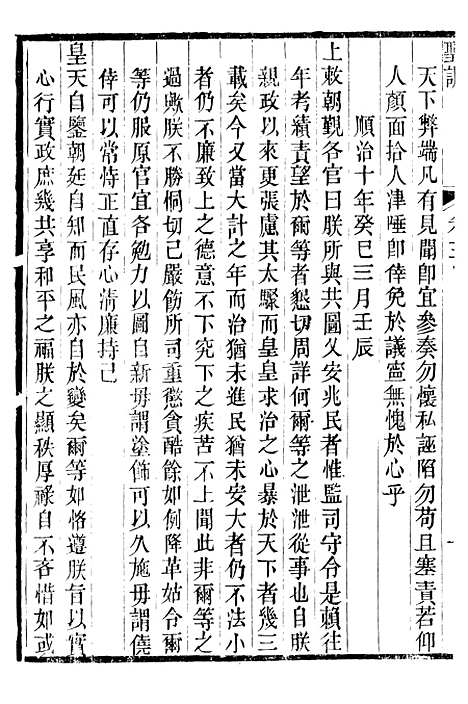 聖訓
卷三
天下弊端凡有見聞卽宜參奏勿懷私誣陷勿苟且塞責若仰
人顏面拾人津唾卽倖免於議寧無愧於心乎
順治十年癸巳三月壬辰
上敕朝覲各官曰朕所與共圖乂安兆民者惟監司守令是賴往
年考績責望於爾等者懇切周詳何爾等之泄泄從事也自朕
親政以來更張慮其太驟而皇皇求治之心暴於天下者幾三
載矣今又當大計之年而治猶未進民猶未安大者仍不法小
者仍不廉致上之德意不下究下之疾苦不上聞此非爾等之
過歟朕不勝恫切已嚴飭所司重懲貪酷餘如例降革姑令爾
等仍服原官宜各勉力以圖自新毋謂塗飾可以久施毋謂僥
倖可以常恃正直存心清廉持己
皇天自鑒朝廷自知而民風亦自於變矣爾等如恪遵朕旨以實
心行實政庶幾共享和平之福朕之顯秩厚祿自不吝惜如或